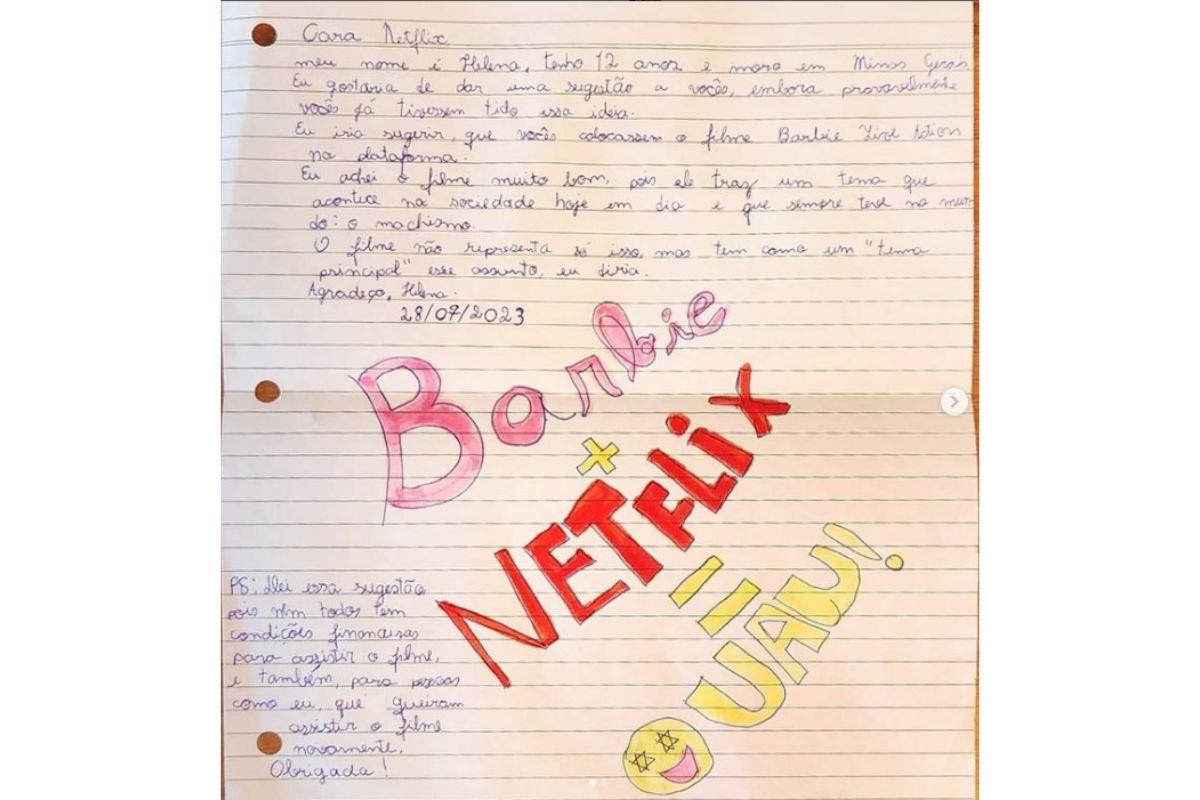 Cara Netflix
meu nome é Helena, tenho 12 anos e moro em Minas Gerais.
Eu gostaria de dar uma sugestão a vocês, embora provavelmente
vocês já tivessem tido essa ideia.
Eu iria sugerir, que vocês colocassem o filme Barbie Live Action
na plataforma.
Eu achei o filme muito bom, pois ele traz um tema que
acontece na sociedade hoje em dia e que sempre teve no mun-
do: o machismo.
O filme não representa só isso, mas tem como um "tema
principal" esse assunto, eu diria.
Agradeço, Helena.
28/07/2023
Barbie
+
NETFLIX
=
UAU!
PS: Dei essa sugestão,
pois nem todos tem
condições financeiras
para assistir o filme,
e também, para pessoas
como eu, que queiram
assistir o filme
novamente!
Obrigada!